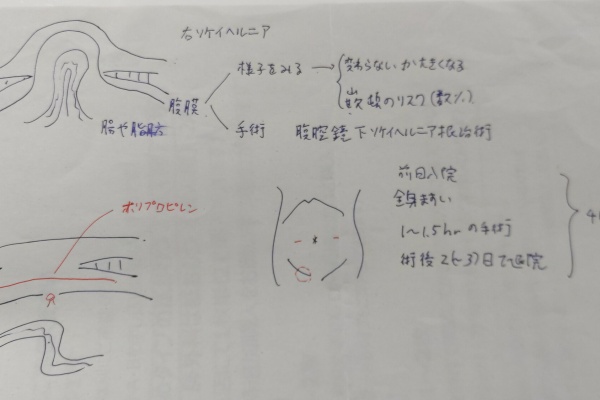 右ソケイヘルニア
様子をみる → 変わらないか大きくなる
嵌頓のリスク(数%)
腹膜
腸や脂肪
手術 腹腔鏡下ソケイヘルニア根治術
前日入院
全身麻酔
1〜1.5hrの手術
術後2(~3)日で退院
ポリプロピレン